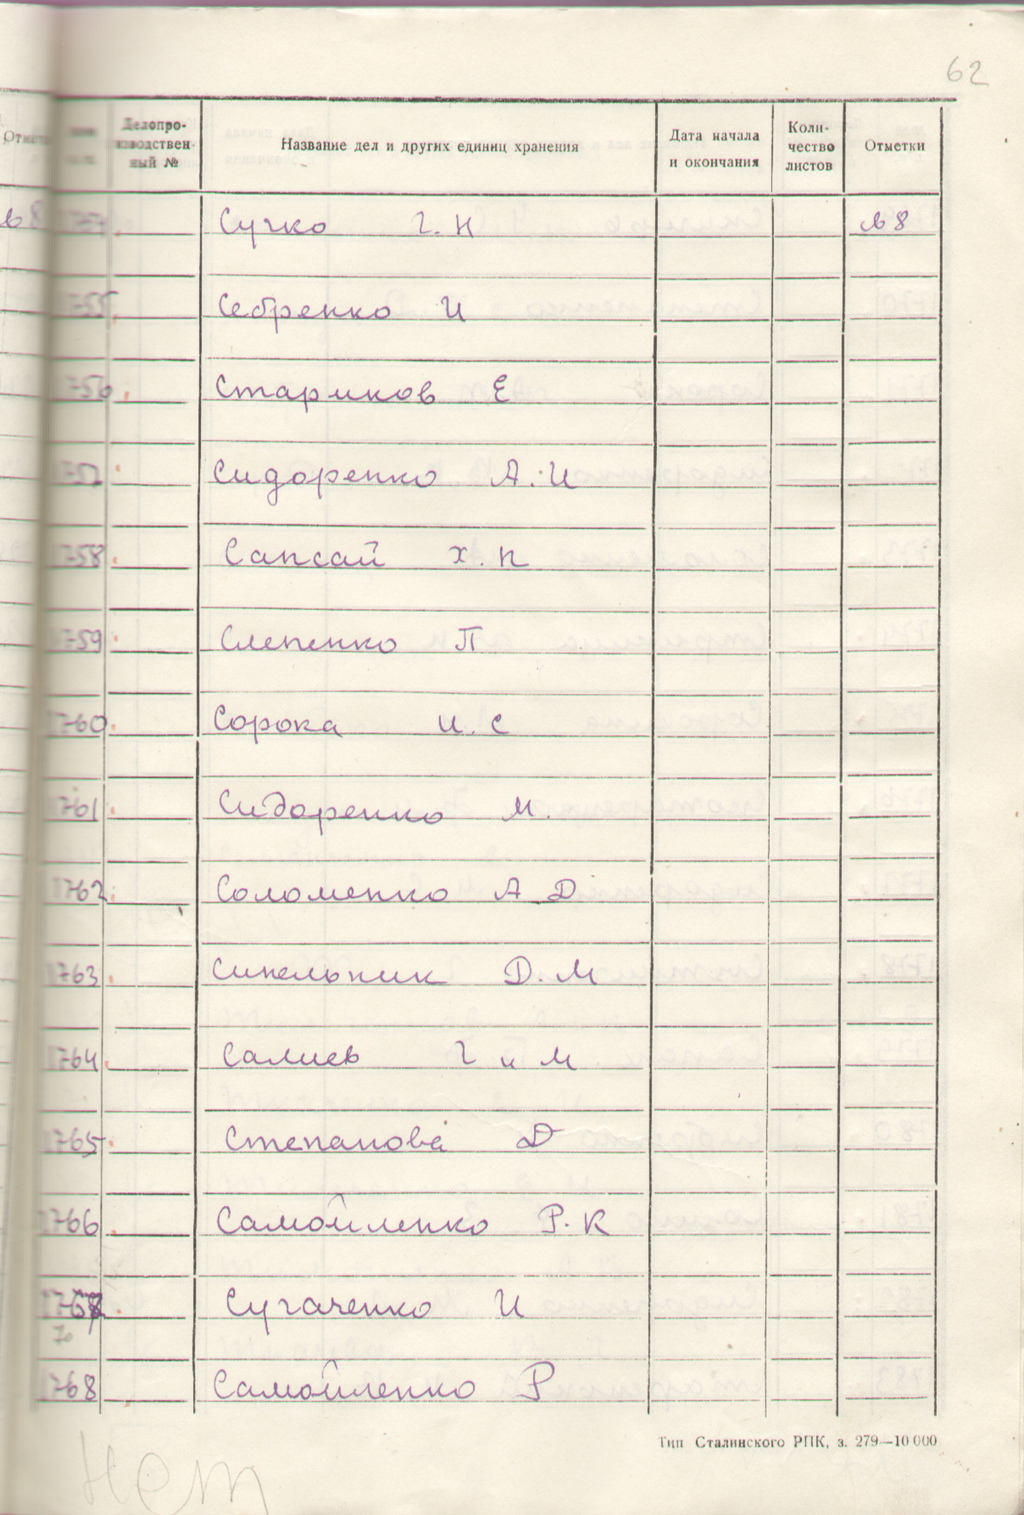 62
Отметки
Делопро-
изводствен-
ный №
Название дел и других единиц хранения
Дата начала
и окончания
Коли-
чество
листов
Отметки
Сучко Г. Н
в 8
1755 Себренко И
1756 Стариков Е
1757 Сидоренко А. И
1758 Сапсай Х. П
1759 Слепенко П
1760 Сорока И. С
1761 Сидоренко М.
1762 Соломенко А Д
1763 Синельник Д. М
1764 Салиев Г и М
1765 Степанова Д
1766 Самойленко Р. К
1767 Сугаченко И
1768 Самойленко Р
Тип Сталинского РПК, з. 279—10 000
Нет